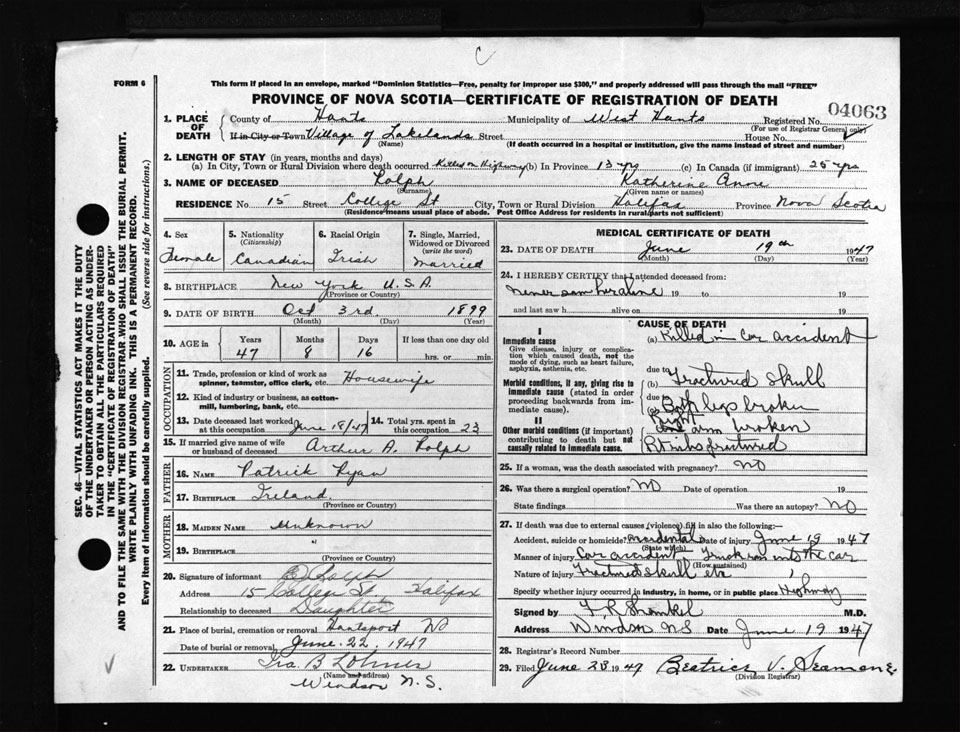 C
FORM 6
This form if placed in an envelope, marked "Dominion Statistics—Free, penalty for improper use $300," and properly addressed will pass through the mail "FREE"
PROVINCE OF NOVA SCOTIA—CERTIFICATE OF REGISTRATION OF DEATH
04063
1. PLACE OF DEATH
County of Hants Municipality of West Hants Registered No.
(For use of Registrar General only)
If in City or Town Village of Lakelands Street House No.
(Name) (If death occurred in a hospital or institution, give the name instead of street and number)
2. LENGTH OF STAY (in years, months and days)
(a) In City, Town or Rural Division where death occurred Killed on Highway (b) In Province 13 yrs (c) In Canada (if immigrant) 25 yrs
3. NAME OF DECEASED Rolph Katherine Anne
(Surname) (Given name or names)
RESIDENCE No. 15 Street College St City, Town or Rural Division Halifax Province Nova Scotia
(Residence means usual place of abode. Post Office Address for residents in rural parts not sufficient)
SEC. 46—VITAL STATISTICS ACT MAKES IT THE DUTY
OF THE UNDERTAKER OR PERSON ACTING AS UNDER-
TAKER TO OBTAIN ALL THE PARTICULARS REQUIRED
IN THE "CERTIFICATE OF REGISTRATION OF DEATH"
AND TO FILE THE SAME WITH THE DIVISION REGISTRAR WHO SHALL ISSUE THE BURIAL PERMIT.
WRITE PLAINLY WITH UNFADING INK. THIS IS A PERMANENT RECORD.
Every item of information should be carefully supplied. (See reverse side for instructions.)
4. Sex
Female
5. Nationality
(Citizenship)
Canadian
6. Racial Origin
Irish
7. Single, Married, Widowed or Divorced
(write the word)
Married
8. BIRTHPLACE New York U.S.A.
(Province or Country)
9. DATE OF BIRTH Oct 3rd. 1899
(Month) (Day) (Year)
10. AGE in Years Months Days If less than one day old
47 8 16 hrs. or min.
OCCUPATION
11. Trade, profession or kind of work as
spinner, teamster, office clerk, etc. Housewife
12. Kind of industry or business, as cotton-
mill, lumbering, bank, etc.
13. Date deceased last worked at this occupation June 18/47 14. Total yrs. spent in this occupation 23
15. If married give name of wife
or husband of deceased Arthur A. Rolph
FATHER
16. NAME Patrick Ryan
17. BIRTHPLACE Ireland
MOTHER
18. MAIDEN NAME Unknown
19. BIRTHPLACE "
(Province or Country)
20. Signature of informant Rolph
Address 15 College St, Halifax
Relationship to deceased Daughter
21. Place of burial, cremation or removal Hantsport NS
Date of burial or removal June. 22, 1947
22. UNDERTAKER Ira. B
(Name and address)
Windsor N.S.
MEDICAL CERTIFICATE OF DEATH
23. DATE OF DEATH June 19th 1947
(Month) (Day) (Year)
24. I HEREBY CERTIFY that I attended deceased from:
never saw her alive 19 to 19
and last saw h alive on 19
CAUSE OF DEATH
I
Immediate cause
Give disease, injury or complica-
tion which caused death, not the
mode of dying, such as heart failure,
asphyxia, asthenia, etc.
(a) Killed in Car accident
due to
Morbid conditions, if any, giving rise to
immediate cause (stated in order
proceeding backwards from im-
mediate cause).
(b) Fractured Skull
due to
(c) Both legs broken
II
Other morbid conditions (if important)
contributing to death but not
causally related to immediate cause.
right arm broken
Rt ribs fractured
25. If a woman, was the death associated with pregnancy? NO
26. Was there a surgical operation? NO Date of operation 19
State findings Was there an autopsy? NO
27. If death was due to external causes (violence) fill in also the following:—
Accident, suicide or homicide? accidental Date of injury June 19 1947
(State which)
Manner of injury Car accident Truck ran into the car
(How sustained)
Nature of injury Fractured skull etc
Specify whether injury occurred in industry, in home, or in public place Highway
Signed by M.D.
Address Windsor NS Date June 19 1947
28. Registrar's Record Number
29. Filed June 25 1947 Beatrice V. Seamone
(Division Registrar)